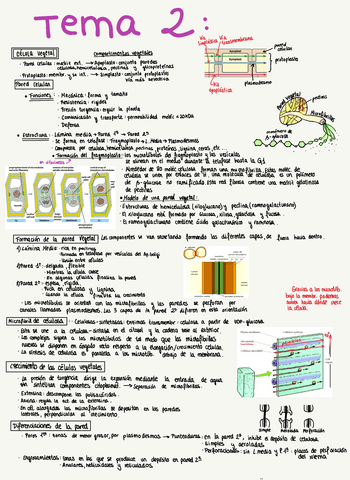 Tema 2:
Célula vegetal
Compartimentos vegetales
· Pared celular: matriz ext. → Apoplasto: conjunto paredes
celulares, hemicelulosa, pectinas y glicoproteínas
· Protoplasto: membr. y su int. → Simplasto: conjunto protoplastos
Vía simplástica
Vía transmembrana
pared celular
protoplasto
plasmodesmo
Vía Apoplástica
Pared Celular
· Funciones: · Mecánica: forma y tamaño
· Resistencia: rigidez
· Presión turgencia: regula la planta
· Comunicación y transporte: permeabilidad moléc
· Defensa
Pared vegetal
Microfibrilla
monómero de β-glucosa
· Estructura: Lámina media → Pared 1ª → Pared 2ª
· Se forma en citofase: fragmoplasto → L. Media → Plasmodesmos
· Compuesta por celulosa, hemicelulosa, pectinas, proteínas, lignina, ceras, etc...
· Formación del fragmoplasto: los microtúbulos del fragmoplasto y las vesículas
se sitúan en el medio durante la telofase hasta la G1
· Alrededor de 80 moléc. celulosa forman una microfibrilla. Estas moléc. de
celulosa se unen por enlaces de H. Una molécula de celulosa es un polímero
de β-glucosa no ramificado. Esta red fibrosa contiene una matriz gelatinosa
de pectinas
· Modelo de una pared vegetal:
· Estructuras de hemicelulosa (xiloglucano) y pectina (ramnogalacturano)
· El xiloglucano está formado por glucosa, xilosa, galactosa y fucosa.
· El ramnogalacturano contiene ácido galacturónico y ramnosa.
Formación de la pared vegetal: Los componentes se van secretando formando las diferentes capas, de fuera hacia dentro
1) Lámina Media: rica en pectinas
· Formada en telofase por vesículas del Ap. Golgi
· Unión entre células
2) Pared 1ª: · delgada, flexible
· Mientras la célula crece
· En algunas células finaliza la pared
3) Pared 2ª: · espesa, rígida
· Rica en celulosa y lignina
· Cuando la célula finaliza su crecimiento
· Las microfibrillas se acortan con las microfibrillas y las paredes se perforan por
canales llamados plasmodesmos. Las 3 capas de la pared 2ª difieren en esta orientación
Gracias a los microtúb.
bajo la membr. podemos
saber hacia dónde crece
la célula.
Microfibrilla de celulosa: · Celulosa-sintetasa: enzimas transmembr. celulosa a partir de UDP-glucosa.
· Ésta se une a la celulosa-sintasa en el citosol y la cadena sale al exterior.
· Los complejos siguen a los microtúbulos de tal modo que las microfibrillas
nuevas se disponen en ángulo recto respecto a la elongación/crecimiento celular.
· La síntesis de celulosa es paralela a los microtúb. debajo de la membrana.
Crecimiento de las células vegetales
· La presión de turgencia dirige la expansión mediante la entrada de agua
sin sintetizar componentes citoplasma → Separación de microfibrillas.
· Extensina: descompone los polisacáridos.
· Auxina: regula la act. de la extensina.
· En cél. alargadas las microfibrillas se depositan en las paredes
laterales, perpendiculares al crecimiento.
Diferenciaciones de la pared
· Poros 1ªˢ: zonas de menor grosor, por plasmodesmos → Punteaduras: en la pared 2ª, inhibe el depósito de celulosa.
· Simples y areoladas.
· Perforaciones: sin L. media y P. 1ª: placas de perforación
del xilema
· Engrosamientos: zonas en las que se produce un depósito en pared 2ª
· Anulares, helicoidales y reticulados.
Simple Areolada Perforación